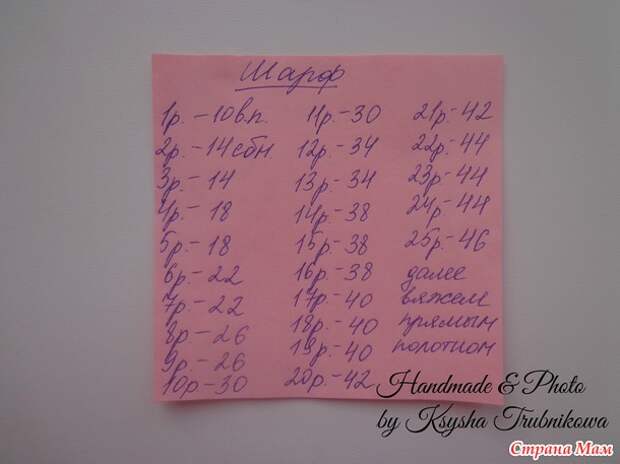 Шарф
1р. - 10 в.п.
2р. - 14 сбн
3р. - 14
4р. - 18
5р. - 18
6р. - 22
7р. - 22
8р - 26
9р. - 26
10р - 30
11р. - 30
12р. - 34
13р. - 34
14р. - 38
15р. - 38
16р. - 38
17р. - 40
18р. - 40
19р. - 40
20р. - 42
21р. - 42
22р. - 44
23р. - 44
24р. - 44
25р. - 46
далее
вяжем
прямым
полотном
Handmade & Photo
by Ksysha Trubnikowa
Страна Мам